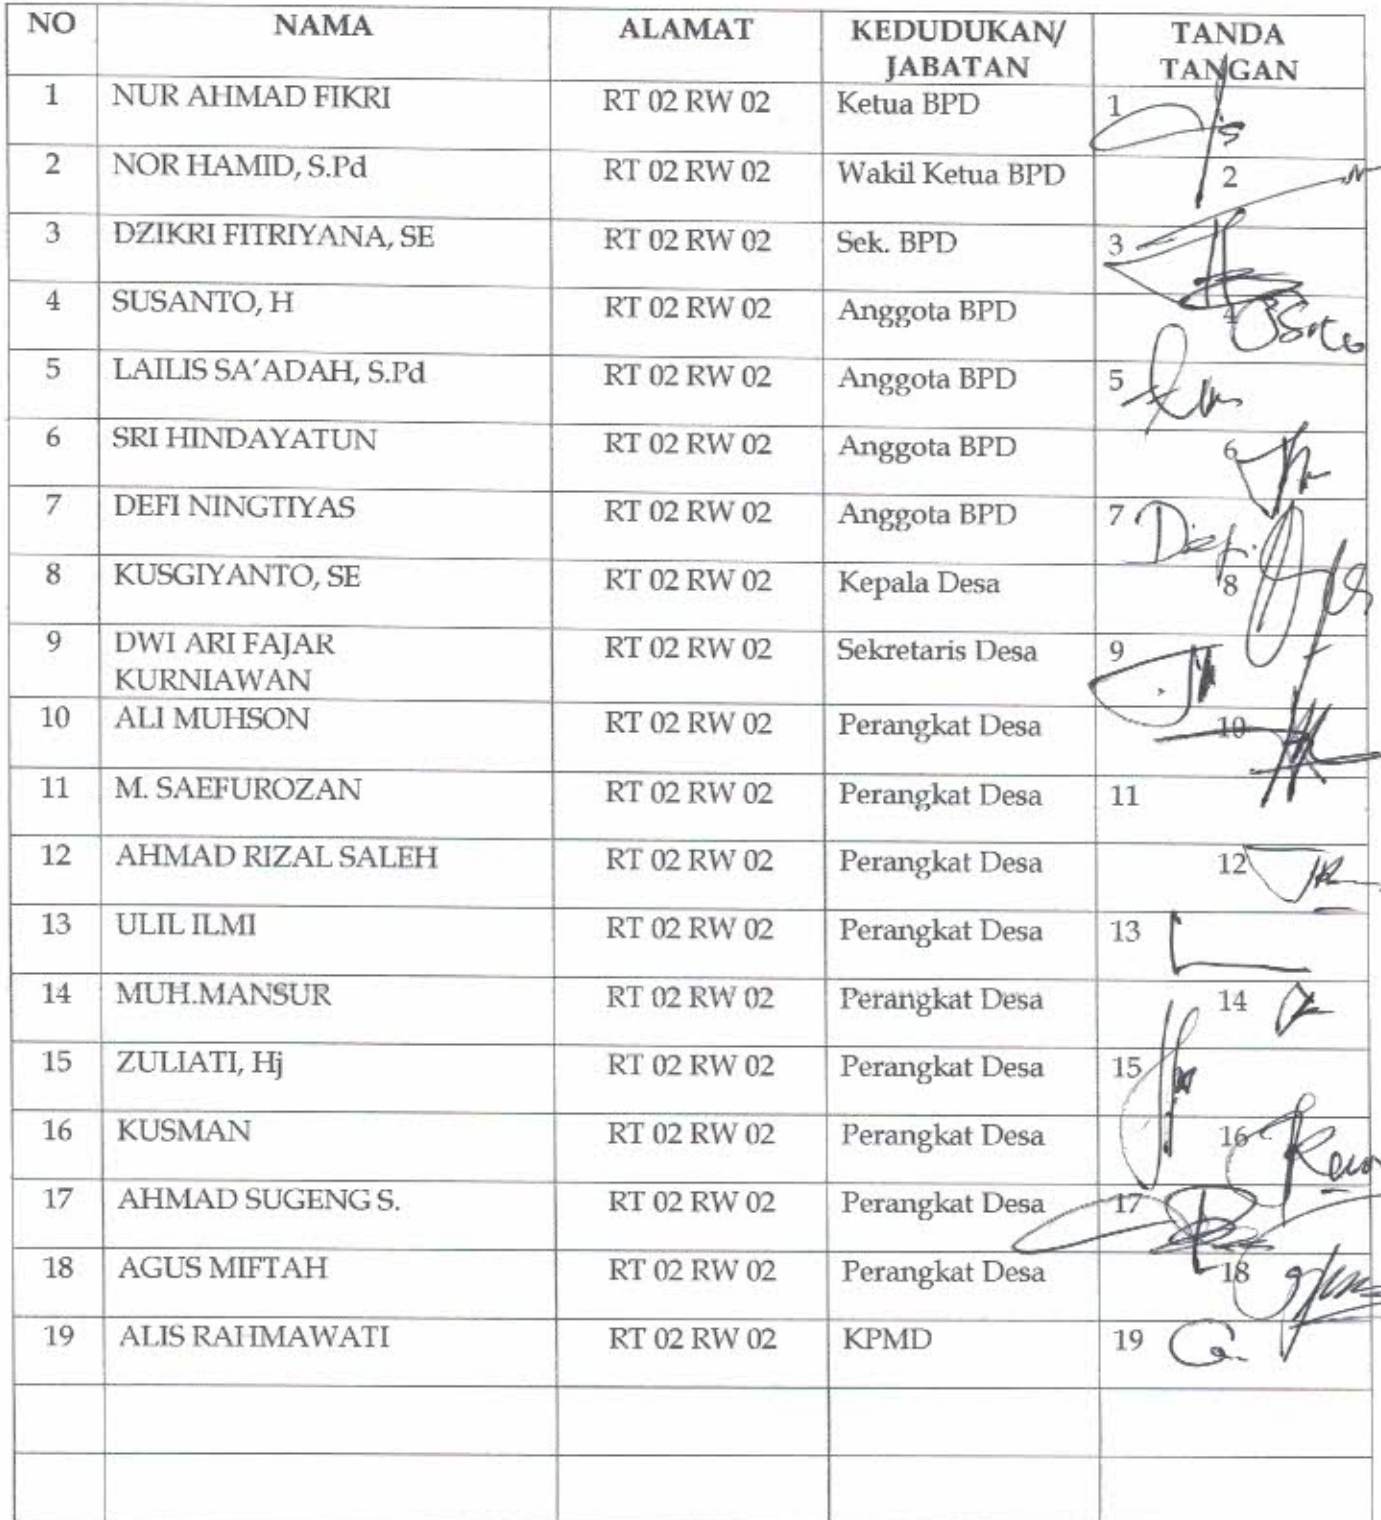 NO NAMA ALAMAT KEDUDUKAN/ JABATAN TANDA TANGAN
1 NUR AHMAD FIKRI RT 02 RW 02 Ketua BPD 1
2 NOR HAMID, S.Pd RT 02 RW 02 Wakil Ketua BPD 2
3 DZIKRI FITRIYANA, SE RT 02 RW 02 Sek. BPD 3
4 SUSANTO, H RT 02 RW 02 Anggota BPD 4
5 LAILIS SA'ADAH, S.Pd RT 02 RW 02 Anggota BPD 5
6 SRI HINDAYATUN RT 02 RW 02 Anggota BPD 6
7 DEFI NINGTIYAS RT 02 RW 02 Anggota BPD 7
8 KUSGIYANTO, SE RT 02 RW 02 Kepala Desa 8
9 DWI ARI FAJAR KURNIAWAN RT 02 RW 02 Sekretaris Desa 9
10 ALI MUHSON RT 02 RW 02 Perangkat Desa 10
11 M. SAEFUROZAN RT 02 RW 02 Perangkat Desa 11
12 AHMAD RIZAL SALEH RT 02 RW 02 Perangkat Desa 12
13 ULIL ILMI RT 02 RW 02 Perangkat Desa 13
14 MUH.MANSUR RT 02 RW 02 Perangkat Desa 14
15 ZULIATI, Hj RT 02 RW 02 Perangkat Desa 15
16 KUSMAN RT 02 RW 02 Perangkat Desa 16
17 AHMAD SUGENG S. RT 02 RW 02 Perangkat Desa 17
18 AGUS MIFTAH RT 02 RW 02 Perangkat Desa 18
19 ALIS RAHMAWATI RT 02 RW 02 KPMD 19